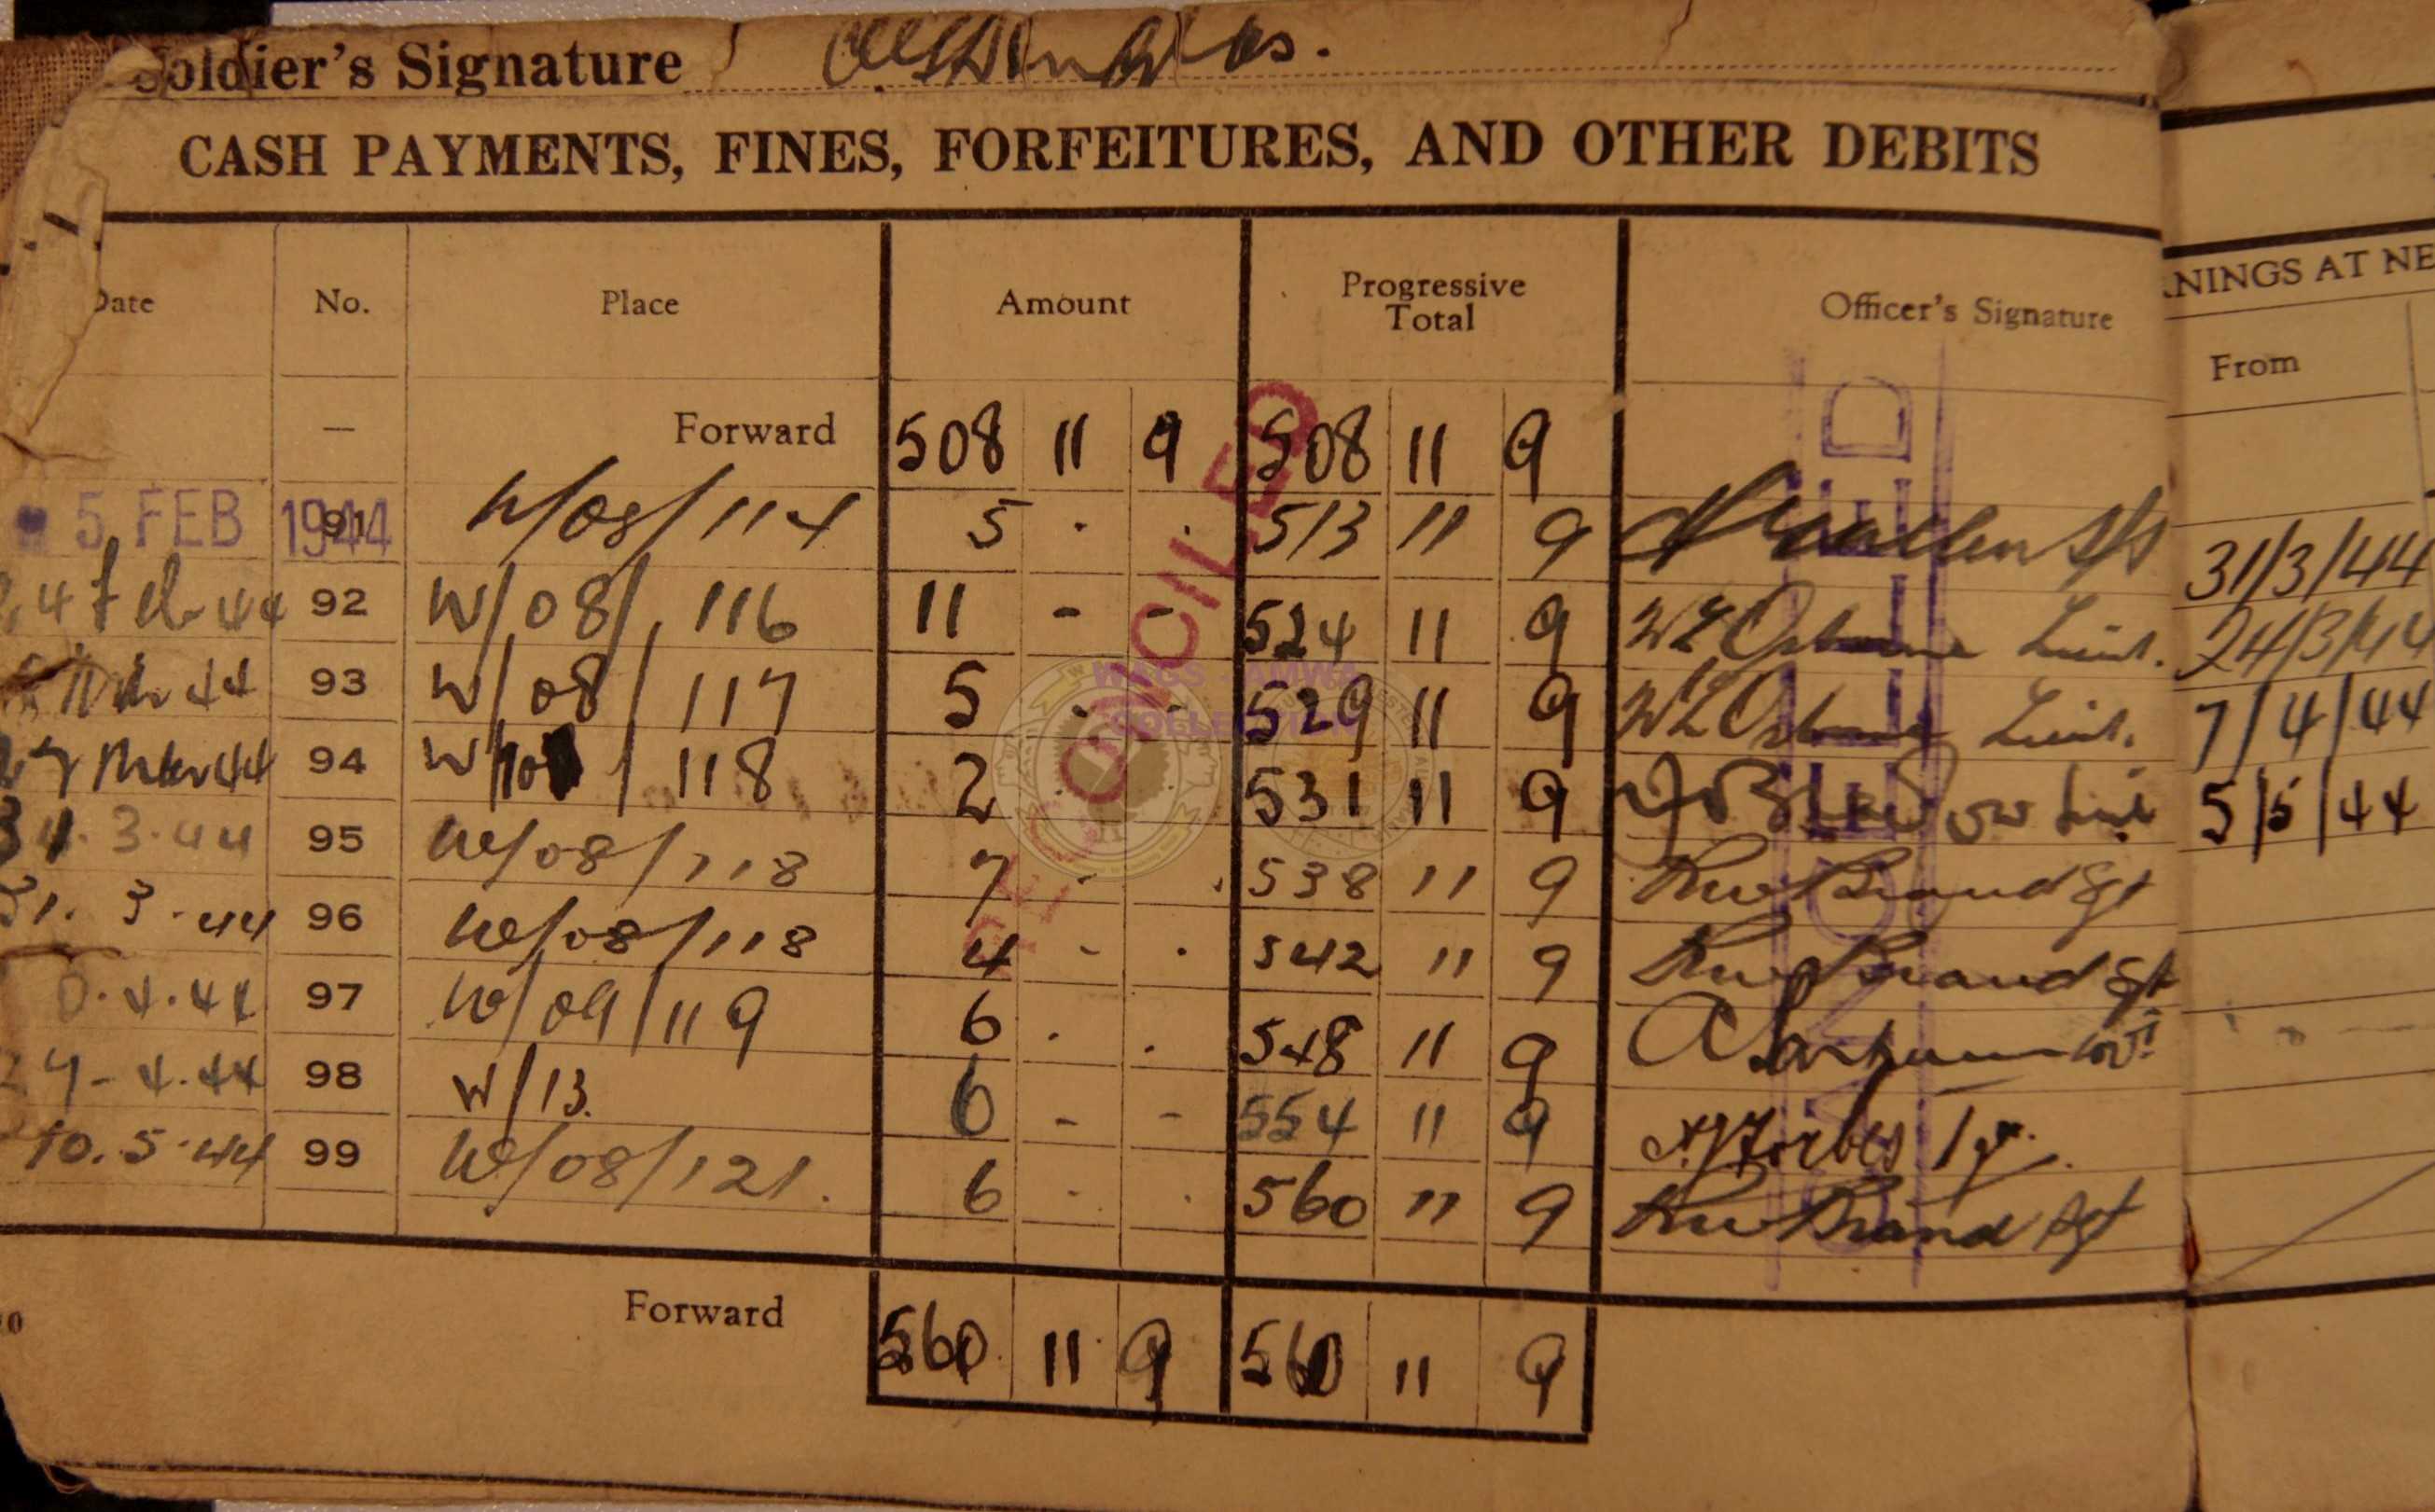 Soldier's Signature
CASH PAYMENTS, FINES, FORFEITURES, AND OTHER DEBITS
Date No. Place Amount Progressive Total Officer's Signature
— Forward 508 11 9 508 11 9
5 FEB 1944 91 W/08/114 5 . . 513 11 9
4 Feb 44 92 W/08/116 11 - - 524 11 9 W L Osborne Lieut.
44 93 W/08/117 5 . - 529 11 9 W L Osborne Lieut.
44 94 W/ /118 2 . 531 11 9
3.44 95 W/08/118 7 - . 538 11 9 Brand Sgt
31.3.44 96 W/08/118 4 - . 542 11 9 Brand Sgt
0.4.44 97 W/09/119 6 . . 548 11 9
4.44 98 W/13. 6 - - 554 11 9 Forbes
10.5.44 99 W/08/121. 6 - . 560 11 9 Brand Sgt
Forward 560 11 9 560 11 9
RECONCILED
CANCELLED
WAGS - AMWA
COLLECTION
NINGS AT NE
From
31/3/44
24/3/44
7/4/44
5/5/44